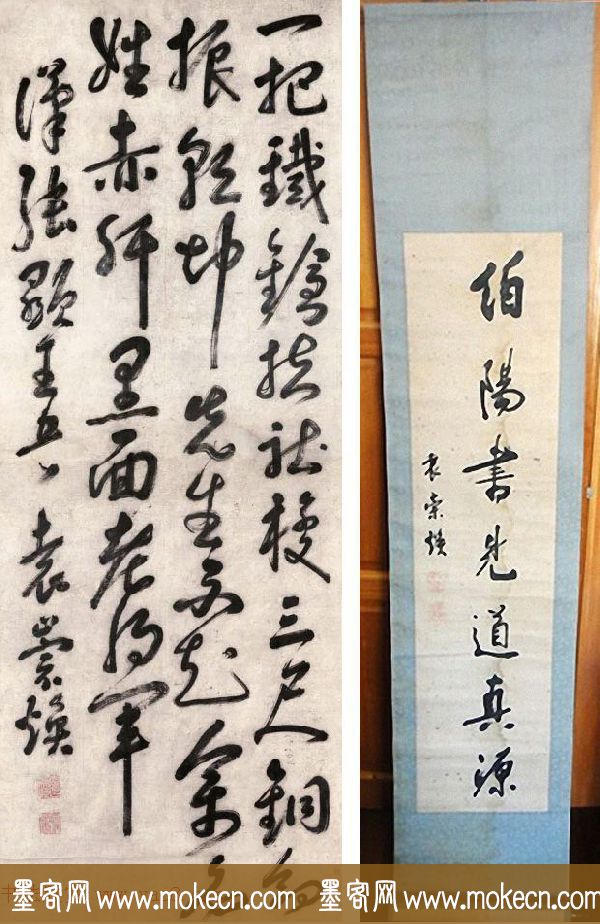 一把鐵鎗扶社稷三尺銅
振乾坤先生
姓赤肝黑面老將軍
漢張顯王
袁崇煥
伯陽書先道真源
袁崇煥
墨客网 www.mokecn.com 墨客网 www.mokecn.com